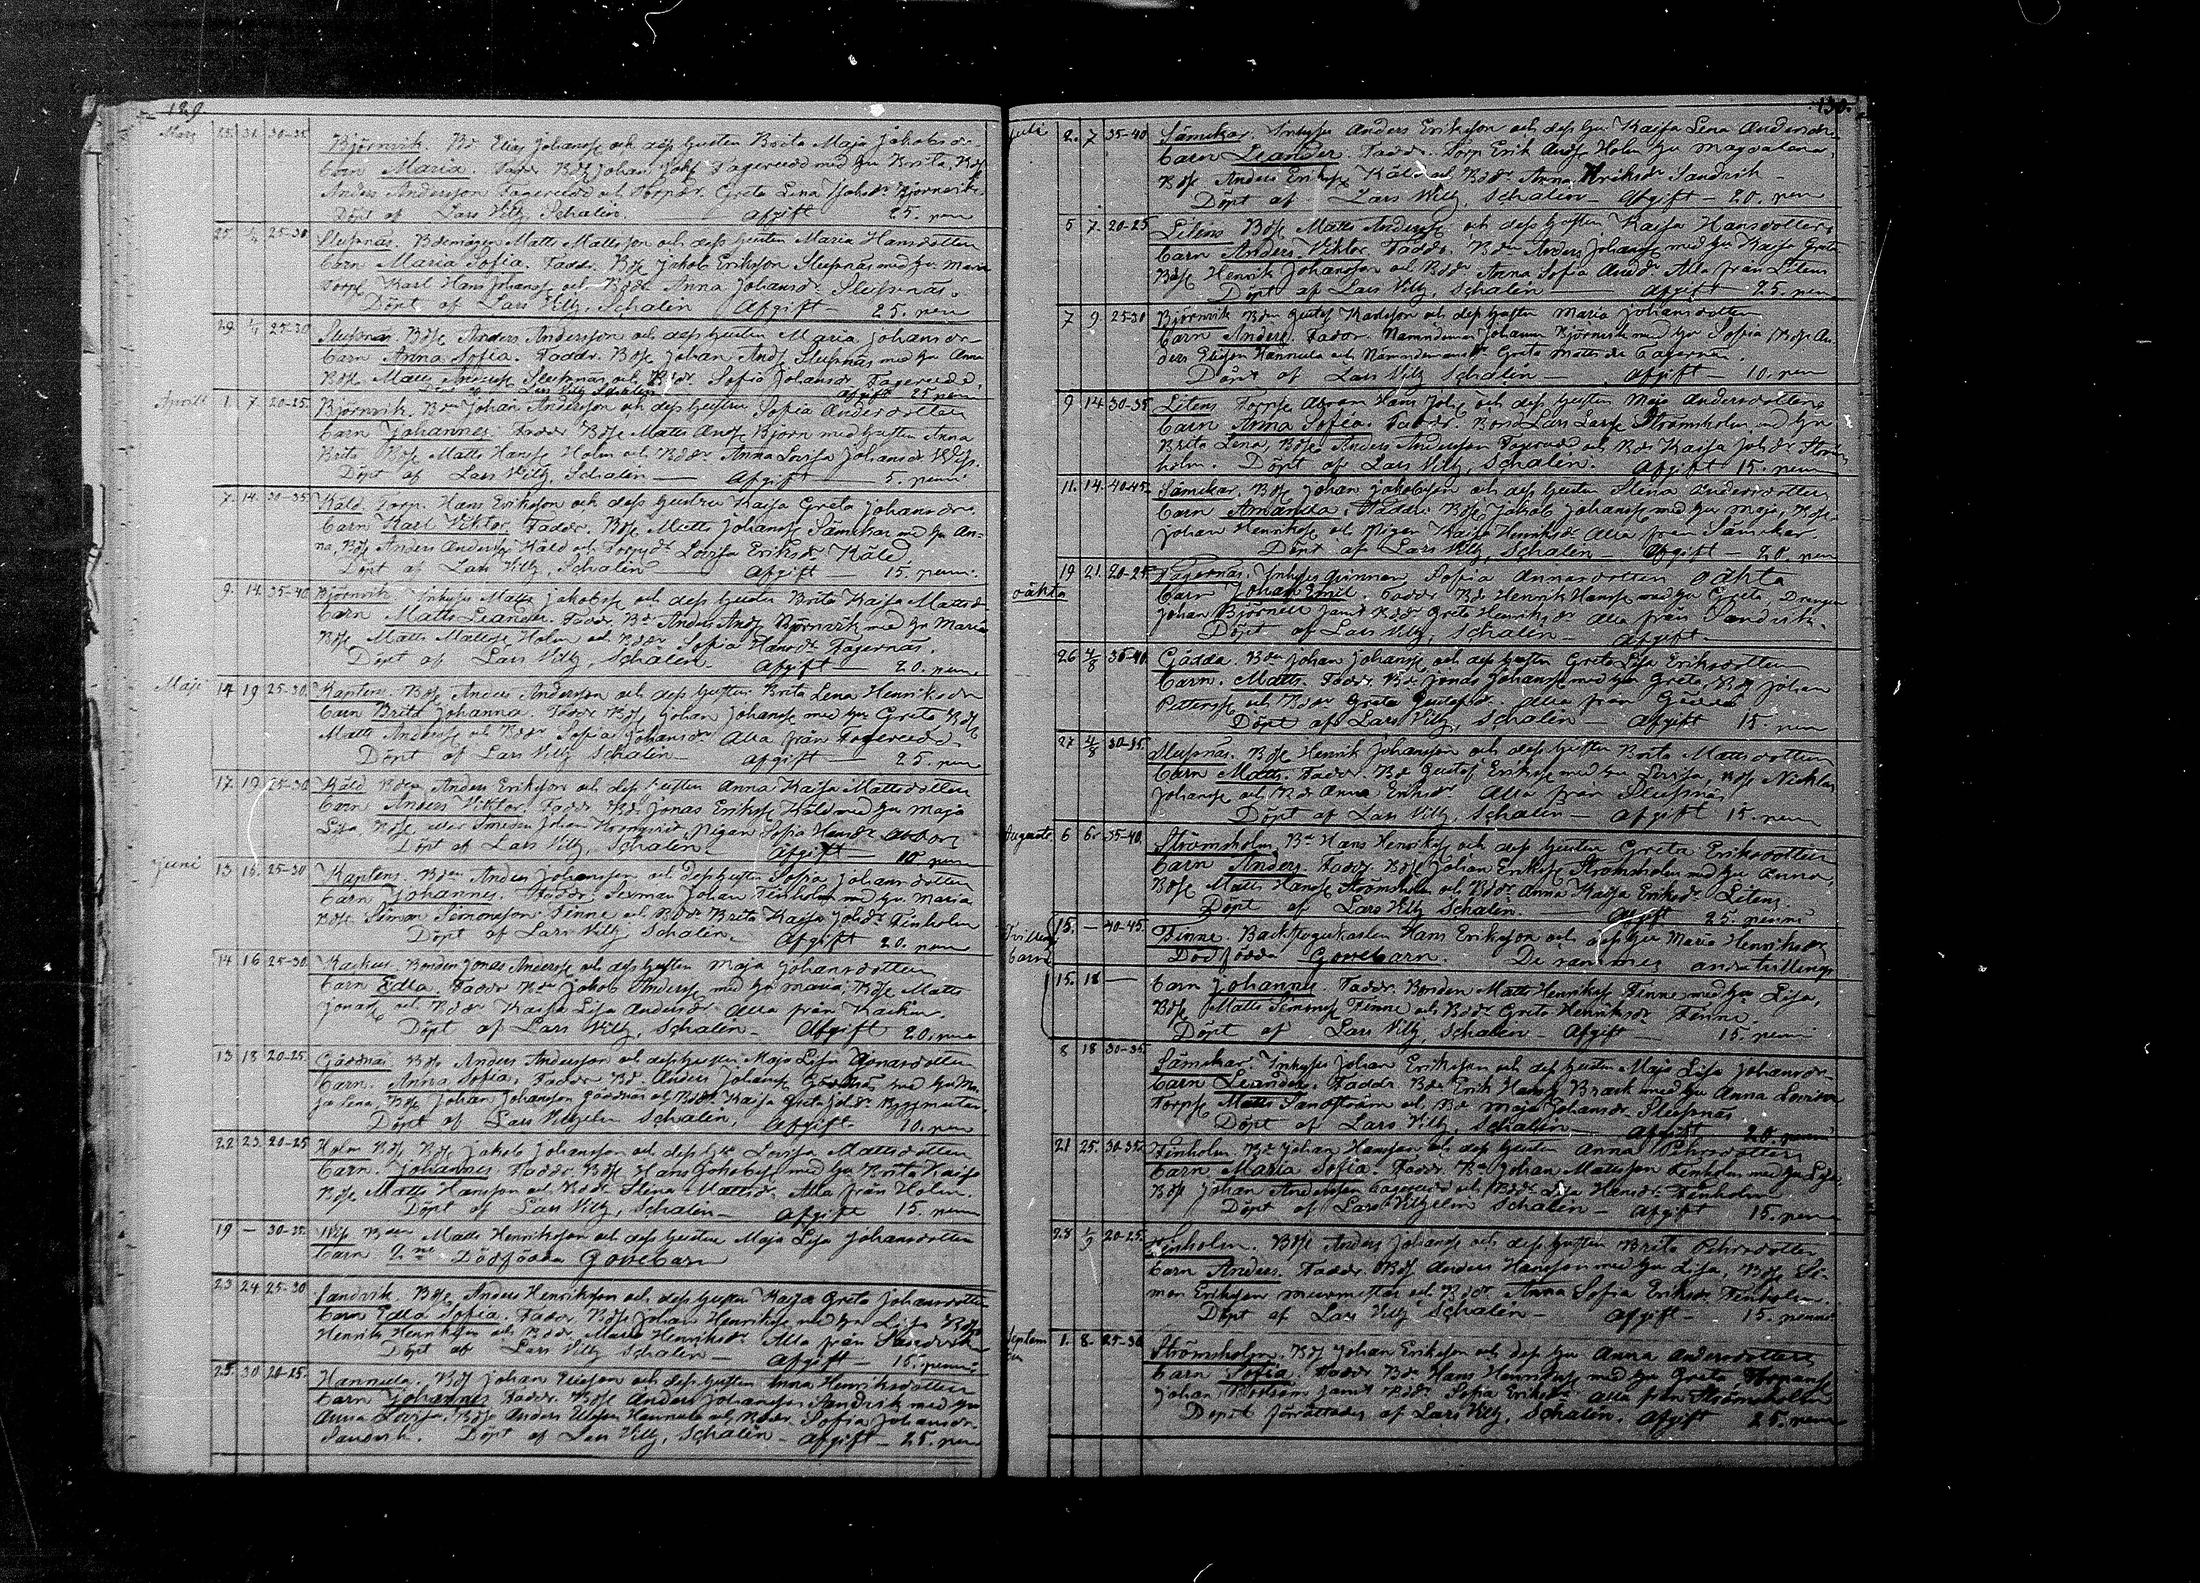 129.
Mars 25. 31. 30-35. Björnvik. Bd Elias Johansf och defs hustru Brita Maja Jakobsdr
barn Maria. Faddr Bdf Johan Johsf Fagerudd med hu Brita, Bdf
Anders Andersson Fagerudd och Torpdr Greta Lena Johsdr Björnvik.
Döpt af Lars Vilh. Schalin. Afgift 25. penni
25 1/4 25-30 Slussnäs. Bdemågen Matts Mattsson och defs hustru Maria Hansdotter
barn Maria Sofia. Faddr. Bdf Jakob Eriksson Slussnäs med hu Maria
Torpf Karl Hans Johansf och Bddr Anna Johansdr Slussnäs.
Döpt af Lars Vilh. Schalin Afgift — 25. penni
29. 1/4 25-30 Slussnäs Bdf Anders Andersson och defs hustru Maria Johansdr
barn Anna Sofia. Faddr. Bdf Johan Andf Slussnäs med hu Anna
Bdf Matts Andersf Slussnäs och Bddr Sofia Johansdr Fagerudd.
Döpt af Lars Vilh Schalin Afgift 25 penni
Aprill 1. 7 20-25. Björnvik. Bden Johan Andersson och defs hustru Sofia Andersdotter
barn Johannes. Faddr Bdf Matts Andf Björn med hustru Anna
Brita Bdf Matts Hansf Holm och Bddr Anna Lovisa Johansdr
Döpt af Lars Vilh. Schalin — Afgift — 5. penni
7. 14. 30-35. Käld. Torp. Hans Eriksson och defs hustru Kajsa Greta Johansdr
barn Karl Viktor. Faddr. Bdf Matts Johansf Sämskar med hu An-
na, Bdf Anders Andersf Käld och Torpdr Lovisa Eriksdr Käld
Döpt af Lars Vilh. Schalin Afgift — 15. penni
9. 14. 35-40 Björnvik. Inhyses Matts Jakobsf och defs hustru Brita Kajsa Mattsdr
barn Matts Leander. Faddr. Bd Anders Andf Björnvik med hu Maria
Bdf Matts Mattssf Holm och Bddr Sofia Hansdr Fagernäs.
Döpt af Lars Vilh. Schalin Afgift — 20. penni
Maji 14 19 25-30. Kaptens. Bdf Anders Andersson och defs hustru Brita Lena Henriksdr
barn Brita Johanna. Faddr Bdf Johan Johansf med hu Greta Bdf
Matts Andersf och Bddr Sofia Johansdr Alla från Fagerudd.
Döpt af Lars Vilh Schalin — Afgift — 25. penni
17. 19 25-30 Käld Bden Anders Eriksson och defs hustru Anna Kajsa Mattsdotter
barn Anders Viktor. Faddr Bd Jonas Eriksf Käld med hu Maja
Lisa, Bdf eller Smeden Johan Kronqvist, Pigan Sofia Hansdr
Döpt af Lars Vilh. Schalin — Afgift — 10 penni
Juni 13 16. 25-30 Kaptens. Bden Anders Johansson och defs hustru Sofia Johansdotter
barn Johannes. Faddr Sexman Johan Finholm med hu Maria
Bdf Simon Simonsson Finne och Bddr Brita Kajsa Johsdr Finholm
Döpt af Lars Vilh Schalin. Afgift 20. penni
14 16 25-30. Kackur. Bonden Jonas Andersf och defs hustru Maja Johansdotter
barn Edla. Faddr Bden Jakob Andersf med hu Maria, Bdf Matts
Jonasf och Bddr Kajsa Lisa Andersdr Alla från Kackur.
Döpt af Lars Vilh, Schalin — Afgift 20. penni
13 18 20-25. Gäddnäs Bdf Anders Andersson och defs hustru Maja Lisa Jonasdotter
barn. Anna Sofia. Faddr Bd. Anders Johansf Gäddnäs med hu Ma-
ja Lena, Bdf Johan Johansson Gäddnäs och Bddr Kajsa Greta Johsdr Byggmästar.
Döpt af Lars Vilhelm Schalin. Afgift 10. penni
22 23. 20-25 Holm Bdf. Bdf Jakob Johansson och defs hu Lovisa Mattsdotter
barn. Johannes Faddr. Bdf Hans Jakobsf med hu Brita Kajsa
Bdf Matts Hansson och Bddr Stena Mattsdr. Alla från Holm.
Döpt af Lars Vilh, Schalin — Afgift 15. penni
19 — 30-35. Bden Matts Henriksson och defs hustru Maja Lisa Johansdotter
barn 2ne Dödfödda Gossebarn
23 24 25-30 Sandvik. Bdf Anders Henriksson och defs hustru Kajsa Greta Johansdotter
barn Edla Sofia. Faddr. Bdf Johan Henriksf med hu Lisa Bdf
Henrik Henriksson och Bddr. Maria Henriksdr Alla från Sandvik
Döpt af Lars Vilh Schalin — Afgift — 15. penni
25. 30 20-25. Hannula. Bdf Johan Eliasson och defs hustru Anna Henriksdotter
barn Johannes Faddr. Bdf Anders Johansson Sandvik med hu
Anna Lovisa, Bdf Anders Eliasson Hannula och Bddr Sofia Johansdr
Sandvik. Döpt af Lars Vilh, Schalin — Afgift — 25. penni
130.
Juli 2. 7 35-40 Sämskar. Inhyses Anders Eriksson och defs hu Kajsa Lena Andersdr
barn Leander. Faddr. Torp Erik Andf Holm hu Magdalena,
Bdf Anders Eriksf Käld och Bddr Anna Eriksdr Sandvik —
Döpt af Lars Vilh, Schalin — Afgift — 20. penni
5 7. 20-25 Litens Bdf Matts Andersf och defs hustru Kajsa Hansdotter
barn Anders Viktor Faddr. Bden Anders Johansf med hu Kajsa Greta
Bdf Henrik Johansson och Bddr Anna Sofia Andsdr Alla från Litens
Döpt af Lars Vilh, Schalin — Afgift 25. penni
7 9 25-30 Björnvik Bden Gustaf Karlsson och defs hustru Maria Johansdotter
barn Anders. Faddr. Nämndeman Johannes Björnvik med hu Sofia, Bdf An-
ders Eliasson Hannula och Nämndemansdr Greta Mattsdr Fagernäs.
Döpt af Lars Vilh Schalin — Afgift — 10. penni
9 14 30-35 Litens Torpf Abram Hans Johsf och defs hustru Maja Andersdotter
barn Anna Sofia. Faddr. Bond Lars Larsf Strömsholm med hu
Brita Lena, Bdf Anders Andersson Fagerudd och Bddr Kajsa Johsdr Ströms-
holm. Döpt af Lars Vilh, Schalin. Afgift 15. penni
11. 14. 40-45. Sämskar. Bdf Johan Jakobsson och defs hustru Stena Andersdotter
barn Amanda. Faddr. Bdf Jakob Johansf med hu Maja, Bdf
Johan Henriksf och Pigan Kajsa Henriksdr Alla från Sämskar
Döpt af Lars Vilh, Schalin — Afgift — 20. penni
oäkta 19 21. 20-25 Fagernäs. Inhyses qvinnan Sofia Annasdotter oäkta
barn Johan Emil. Faddr Bd Henrik Hansf med hu Greta, Drängen
Johan Björnell samt Bddr Greta Henriksdr Alla från Sandvik.
Döpt af Lars Vilh, Schalin — Afgift —
26 4/8 35-40 Gädda. Bden Johan Johansf och defs hustru Greta Lisa Eriksdotter
barn. Matts. Faddr. Bd Jonas Johansf med hu Greta, Bdf Johan
Pettersf och Bddr Greta Gustafsdr. Alla från Gädda
Döpt af Lars Vilh, Schalin — Afgift 15. penni
27 4/8 30-35. Slussnäs. Bdf Henrik Johansson och defs hustru Brita Mattsdotter
barn Matts. Faddr. Bd Gustaf Eriksf med hu Lovisa, Bdf Nicklas
Johansf och Bddr Anna Eriksdr Alla från Slussnäs
Döpt af Lars Vilh, Schalin — Afgift 15. penni
Augusti 6 6. 35-40. Strömsholm Bd Hans Henriksf och defs hustru Greta Eriksdotter
barn Anders. Faddr Bdf Johan Eriksf Strömsholm med hu Anna,
Bdf Matts Hansf Strömsholm och Bddr Anna Kajsa Eriksdr Litens.
Döpt af Lars Vilh Schalin — Afgift 25. penni
Trilling barn 15. — 40-45. Finne. Backstugukarlen Hans Eriksson och defs hu Maria Henriksdr
Dödfödda Gossebarn. De rammes andra trillings
15. 18 — barn Johannes. Faddr. Bonden Matts Henriksf Finne med hu Lisa,
Bdf Matts Simonsf Finne och Bddr Greta Henriksdr Finne.
Döpt af Lars Vilh, Schalin — Afgift — 15. penni
8 18 30-35. Sämskar. Inhyses Johan Eriksson och defs hustru Maja Lisa Johansdr
barn Leander. Faddr. Bden Erik Hansf Brack med hu Anna Lovisa
Torpf Matts Sandström och Bddr Maja Johansdr Slussnäs
Döpt af Lars Vilh, Schalin — Afgift 20. penni
21 25. 30-35. Finholm Bd Johan Hansson och defs hustru Anna Pehrsdotter
barn Maria Sofia. Faddr. Bd Johan Mattsson Finholm med hu Lisa,
Bdf Johan Andersson Fagerudd och Bddr Lisa Hansdr Finholm
Döpt af Lars Vilhelm Schalin — Afgift 15. penni
28 1/9 20-25. Finholm. Bdf Anders Johansf och defs hustru Brita Pehrsdotter
barn Anders. Faddr. Bdf Anders Hansson med hu Lisa, Bdf Si-
mon Eriksson murmester och Bddr Anna Sofia Eriksdr Finholm.
Döpt af Lars Vilh Schalin — Afgift — 15. penni
Septem 1. 8. 25-30 Strömsholm. Bdf Johan Eriksson och defs hu Anna Andersdotter
barn Sofia. Faddr Bd Hans Henriksf med hu Greta
Johan samt Bddr Sofia Eriksdr Alla från Strömsholm
Döpt förrättades af Lars Vilh, Schalin. Afgift 25. penni